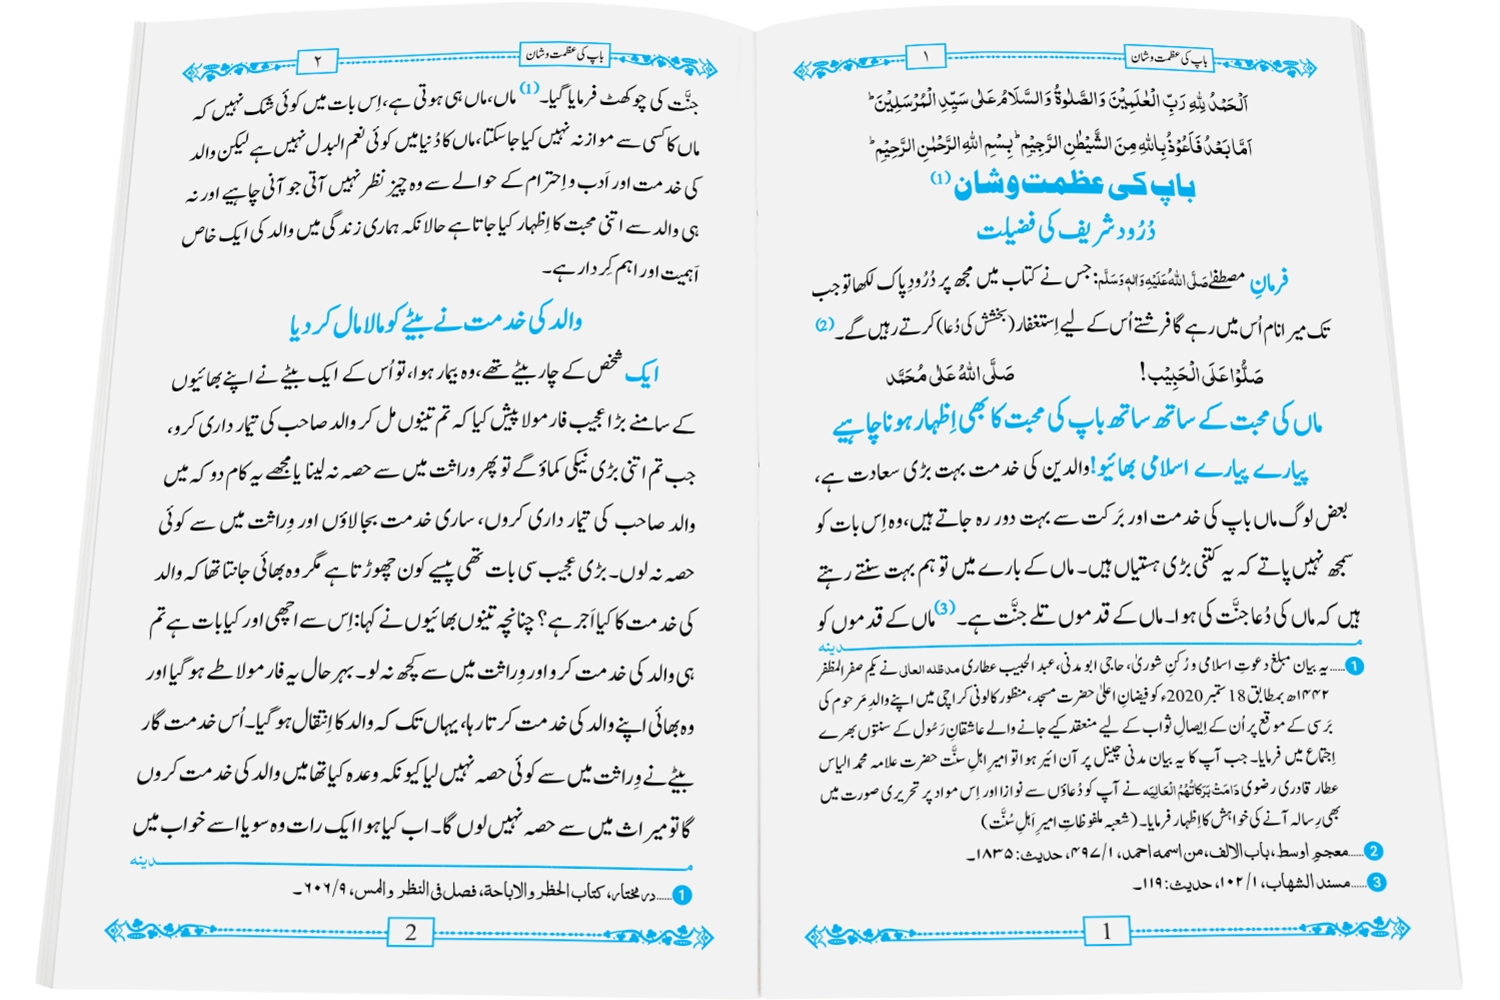 باپ کی عظمت و شان
۱
اَلْحَمْدُ لِلّٰهِ رَبِّ الْعٰلَمِیْنَ وَالصَّلٰوةُ وَالسَّلَامُ عَلٰی سَیِّدِ الْمُرْسَلِیْنَ ؕ
اَمَّا بَعْدُ فَاَعُوْذُ بِاللّٰهِ مِنَ الشَّیْطٰنِ الرَّجِیْمِ ؕ بِسْمِ اللّٰهِ الرَّحْمٰنِ الرَّحِیْمِ ؕ
باپ کی عظمت و شان (1)
دُرُود شریف کی فضیلت
فرمانِ مصطفےٰ صَلَّی اللّٰهُ عَلَیْهِ وَاٰلِهٖ وَسَلَّم: جس نے کتاب میں مجھ پر دُرُودِ پاک لکھا تو جب
تک میرا نام اُس میں رہے گا فرشتے اُس کے لیے اِستغفار (بخشش کی دُعا) کرتے رہیں گے۔ (2)
صَلُّوْا عَلَی الْحَبِیْب! صَلَّی اللّٰهُ عَلٰی مُحَمَّد
ماں کی محبت کے ساتھ ساتھ باپ کی محبت کا بھی اِظہار ہونا چاہیے
پیارے پیارے اسلامی بھائیو! والدین کی خدمت بہت بڑی سعادت ہے،
بعض لوگ ماں باپ کی خدمت اور بَرکت سے بہت دور رہ جاتے ہیں، وہ اِس بات کو
سمجھ نہیں پاتے کہ یہ کتنی بڑی ہستیاں ہیں۔ ماں کے بارے میں تو ہم بہت سنتے رہتے
ہیں کہ ماں کی دُعا جنَّت کی ہوا۔ ماں کے قدموں تلے جنَّت ہے۔ (3) ماں کے قدموں کو
مـدینه
1 ..... یہ بیان مبلغِ دعوتِ اسلامی و رُکنِ شوریٰ، حاجی ابو مدنی، عبد الحبیب عطاری مدظلہ العالی نے یکم صفر المظفر
۱۴۴۲ھ بمطابق 18 ستمبر 2020ء کو فیضانِ اعلیٰ حضرت مسجد، منظور کالونی کراچی میں اپنے والدِ مَرحوم کی
بَرسی کے موقع پر اُن کے اِیصالِ ثواب کے لیے منعقد کیے جانے والے عاشقانِ رَسُول کے سنتوں بھرے
اِجتماع میں فرمایا۔ جب آپ کا یہ بیان مدنی چینل پر آن ائیر ہوا تو امیرِ اہلِ سنَّت حضرت علامہ محمد الیاس
عطار قادری رضوی دَامَتْ بَرَکاتُہُمُ الْعَالِیَہ نے آپ کو دُعاؤں سے نوازا اور اِس مواد پر تحریری صورت میں
بھی رِسالہ آنے کی خواہش کا اِظہار فرمایا۔ (شعبہ ملفوظاتِ امیرِ اَہلِ سُنَّت)
2 ..... معجمِ اوسط، باب الالف، من اسمه احمد، ۱/ ۴۹۷، حدیث: ۱۸۳۵۔
3 ..... مسند الشهاب، ۱/ ۱۰۲، حدیث: ۱۱۹۔
1
باپ کی عظمت و شان
۲
جنَّت کی چوکھٹ فرمایا گیا۔ (1) ماں، ماں ہی ہوتی ہے، اِس بات میں کوئی شک نہیں کہ
ماں کا کسی سے موازنہ نہیں کیا جا سکتا، ماں کا دُنیا میں کوئی نعم البدل نہیں ہے لیکن والد
کی خدمت اور اَدب و اِحترام کے حوالے سے وہ چیز نظر نہیں آتی جو آنی چاہیے اور نہ
ہی والد سے اتنی محبت کا اِظہار کیا جاتا ہے حالانکہ ہماری زندگی میں والد کی ایک خاص
اَہمیت اور اہم کِردار ہے۔
والد کی خدمت نے بیٹے کو مالا مال کر دیا
ایک شخص کے چار بیٹے تھے، وہ بیمار ہوا، تو اُس کے ایک بیٹے نے اپنے بھائیوں
کے سامنے بڑا عجیب فارمولا پیش کیا کہ تم تینوں مل کر والد صاحب کی تیمارداری کرو،
جب تم اتنی بڑی نیکی کماؤ گے تو پھر وراثت میں سے حصہ نہ لینا یا مجھے یہ کام دو کہ میں
والد صاحب کی تیمارداری کروں، ساری خدمت بجا لاؤں اور وِراثت میں سے کوئی
حصہ نہ لوں۔ بڑی عجیب سی بات تھی پیسے کون چھوڑتا ہے مگر وہ بھائی جانتا تھا کہ والد
کی خدمت کا کیا اَجر ہے؟ چنانچہ تینوں بھائیوں نے کہا: اِس سے اچھی اور کیا بات ہے تم
ہی والد کی خدمت کرو اور وِراثت میں سے کچھ نہ لو۔ بہرحال یہ فارمولا طے ہو گیا اور
وہ بھائی اپنے والد کی خدمت کرتا رہا، یہاں تک کہ والد کا اِنتقال ہو گیا۔ اُس خدمت گار
بیٹے نے وِراثت میں سے کوئی حصہ نہیں لیا کیونکہ وعدہ کیا تھا میں والد کی خدمت کروں
گا تو میراث میں سے حصہ نہیں لوں گا۔ اب کیا ہوا ایک رات وہ سویا اسے خواب میں
مـدینه
1 ..... در مختار، کتاب الحظر والاباحة، فصل فی النظر والمس، ۹/ ۶۰۶۔
2